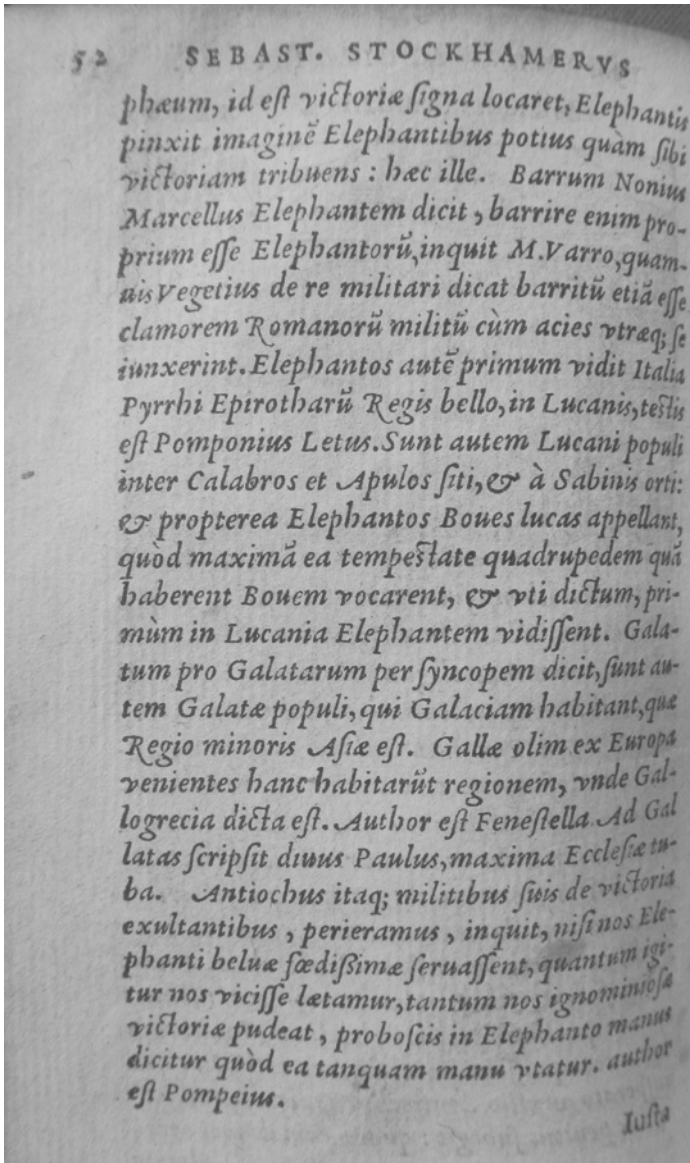 52 SEBAST. STOCKHAMERVS
phæum, id eſt victoriæ ſigna locaret, Elephantis
pinxit imaginẽ Elephantibus potius quàm ſibi
victoriam tribuens : hæc ille. Barrum Nonius
Marcellus Elephantem dicit, barrire enim pro-
prium eſſe Elephantorũ, inquit M. Varro, quam-
uis Vegetius de re militari dicat barritũ etiã eſſe
clamorem Romanorũ militũ cùm acies vtræq; ſe
iunxerint. Elephantos autẽ primum vidit Italia
Pyrrhi Epirotharũ Regis bello, in Lucanis, teſtis
eſt Pomponius Letus. Sunt autem Lucani populi
inter Calabros et Apulos ſiti, & à Sabinis orti:
& propterea Elephantos Boues lucas appellant,
quòd maximã ea tempeſtate quadrupedem quã
haberent Bouem vocarent, & vti dictum, pri-
mùm in Lucania Elephantem vidiſſent. Gala-
tum pro Galatarum per ſyncopem dicit, ſunt au-
tem Galatæ populi, qui Galaciam habitant, quæ
Regio minoris Aſiæ eſt. Gallæ olim ex Europa
venientes hanc habitarũt regionem, vnde Gal-
logrecia dicta eſt. Author eſt Feneſtella. Ad Gal
latas ſcripſit diuus Paulus, maxima Eccleſiæ tu-
ba. Antiochus itaq; militibus ſuis de victoria
exultantibus, perieramus, inquit, niſi nos Ele-
phanti beluæ fœdißimæ ſeruaſſent, quantum igi-
tur nos viciſſe lætamur, tantum nos ignominioſæ
victoriæ pudeat, proboſcis in Elephanto manus
dicitur quòd ea tanquam manu vtatur. author
eſt Pompeius.
Iuſta